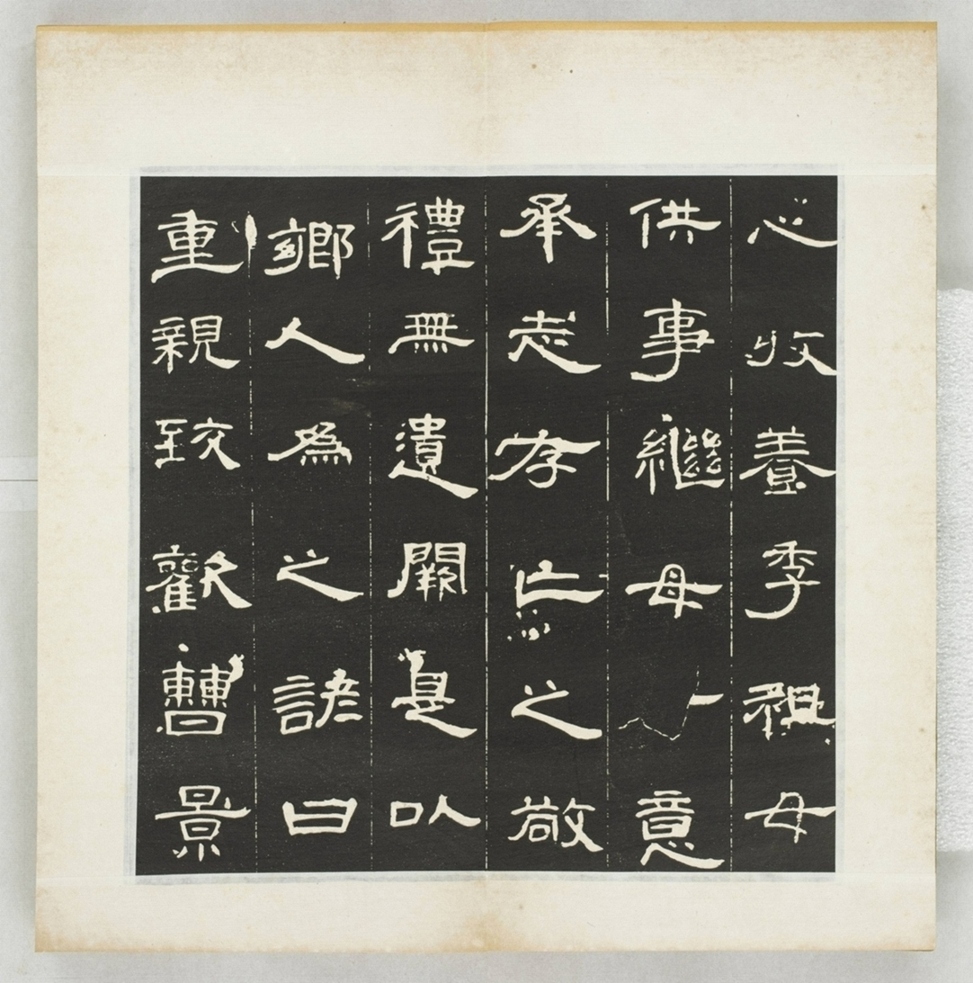 心收養季祖母
供事繼母意
承志存亡之敬
禮無遺闕是以
鄉人為之諺曰
重親致歡曹景